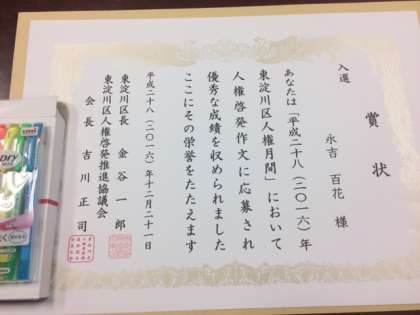 賞状
入選
永吉 百花 様
あなたは「平成二十八(二〇一六)年
東淀川区人権月間」において
人権啓発作文に応募され
優秀な成績を収められました
ここにその栄誉をたたえます
平成二十八(二〇一六)年十二月二十一日
東淀川区長 金谷 一郎
東淀川区人権啓発推進協議会
会長 吉川 正司
uni